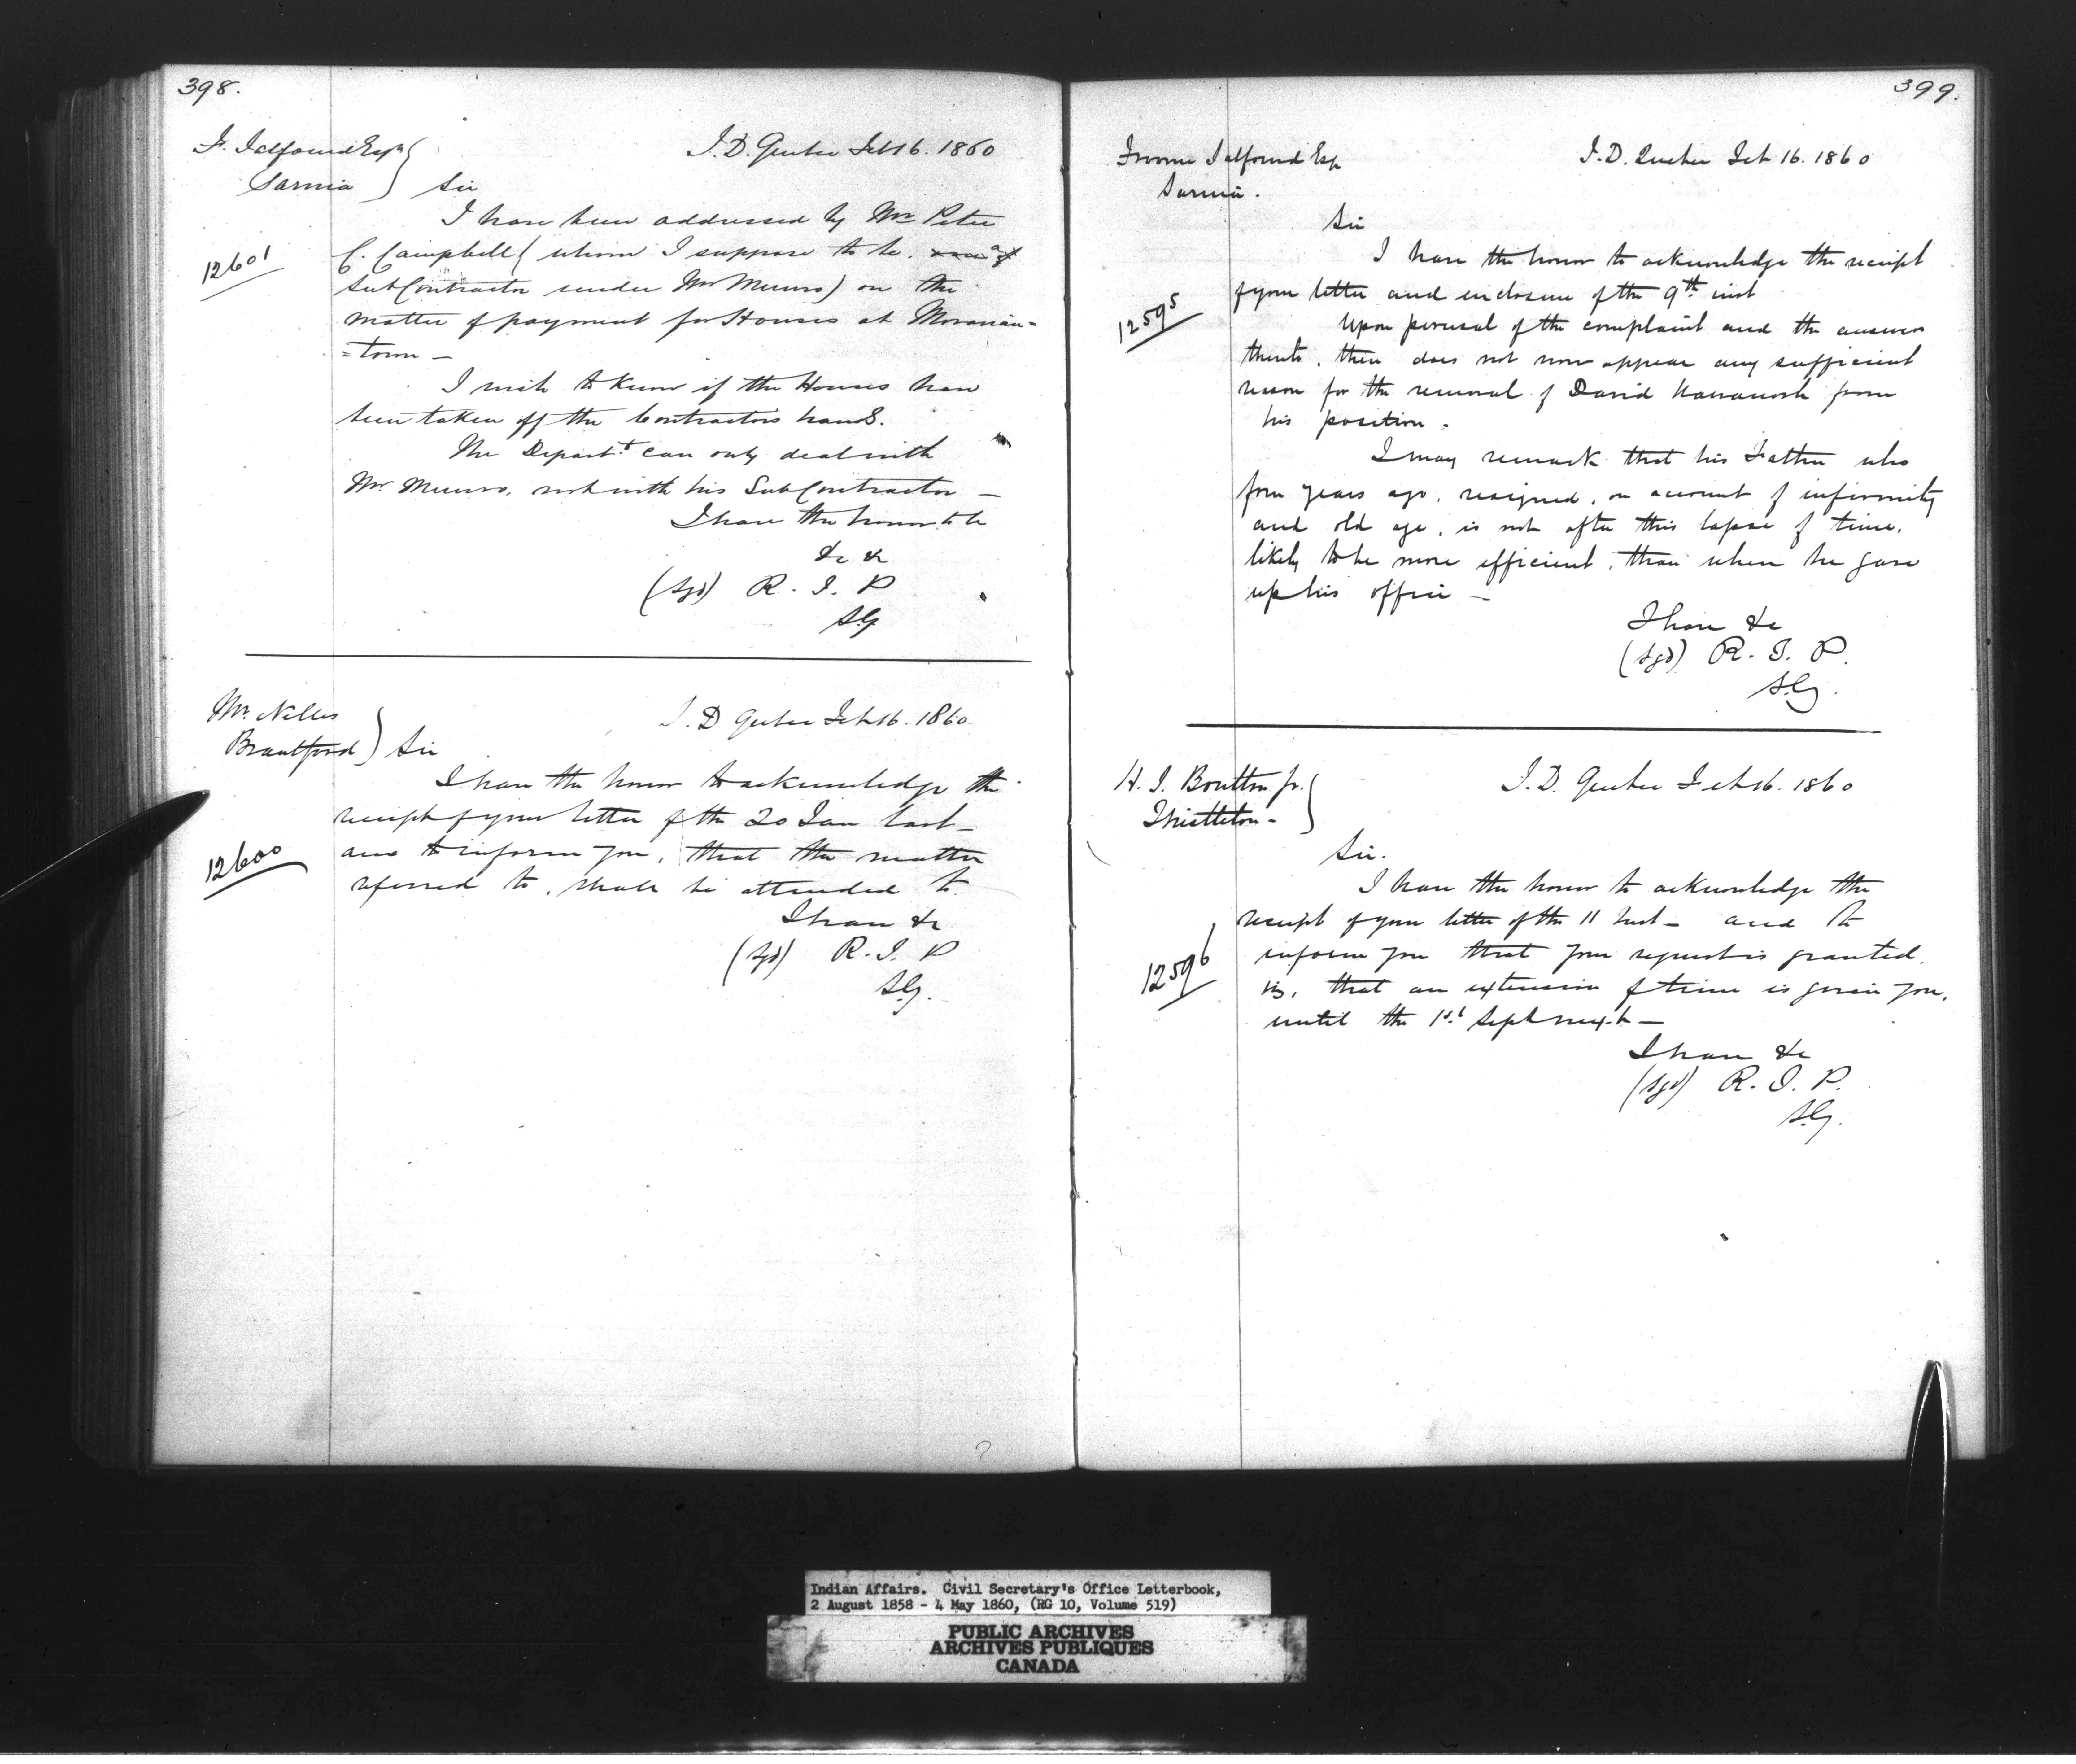 398.
F. Talfourd Esqr
Sarnia
I. D. Quebec Feb 16. 1860
Sir
I have been addressed by Mr Peter
C. Campbell (whom I suppose to be a
12601
SubContractor under Mr Munro) on the
matter of payment for Houses at Moravian=
=town —
I wish to know if the Houses have
been taken off the Contractors hands.
The Depart.t can only deal with
Mr Munro, not with his SubContractor —
I have the honor to be
&c &c
(Sgd) R. T. P
S.G.
Mr Nelles
Brantford
I. D Quebec Feb 16. 1860.
Sir
I have the honor to acknowledge the
receipt of your letter of the 20 Jan last —
12600
and to inform you, that the matter
referred to, shall be attended to.
I have &c
(Sgd) R. T. P
S.G.
399.
Froome Talfourd Esq
Sarnia.
I. D. Quebec Feb 16. 1860
Sir
I have the honor to acknowledge the receipt
of your letter and enclosure of the 9th inst
12595
Upon perusal of the complaint and the answer
thereto, there does not now appear any sufficient
reason for the removal of David Wawanosh from
his position.
I may remark that his Father who
four years ago, resigned, on account of infirmity
and old age, is not after this lapse of time,
likely to be more efficient, than when he gave
up his office —
I have &c
(Sgd) R. T. P.
S.G.
H. J. Boulton Jr.
Thistleton —
I. D. Quebec Feb 16. 1860
Sir.
I have the honor to acknowledge the
receipt of your letter of the 11 Inst — and to
12596
inform you that your request is granted.
viz, that an extension of time is given you,
until the 1st Sept next —
I have &c
(Sgd) R. T. P.
S.G.
Indian Affairs. Civil Secretary's Office Letterbook,
2 August 1858 - 4 May 1860, (RG 10, Volume 519)
PUBLIC ARCHIVES
ARCHIVES PUBLIQUES
CANADA